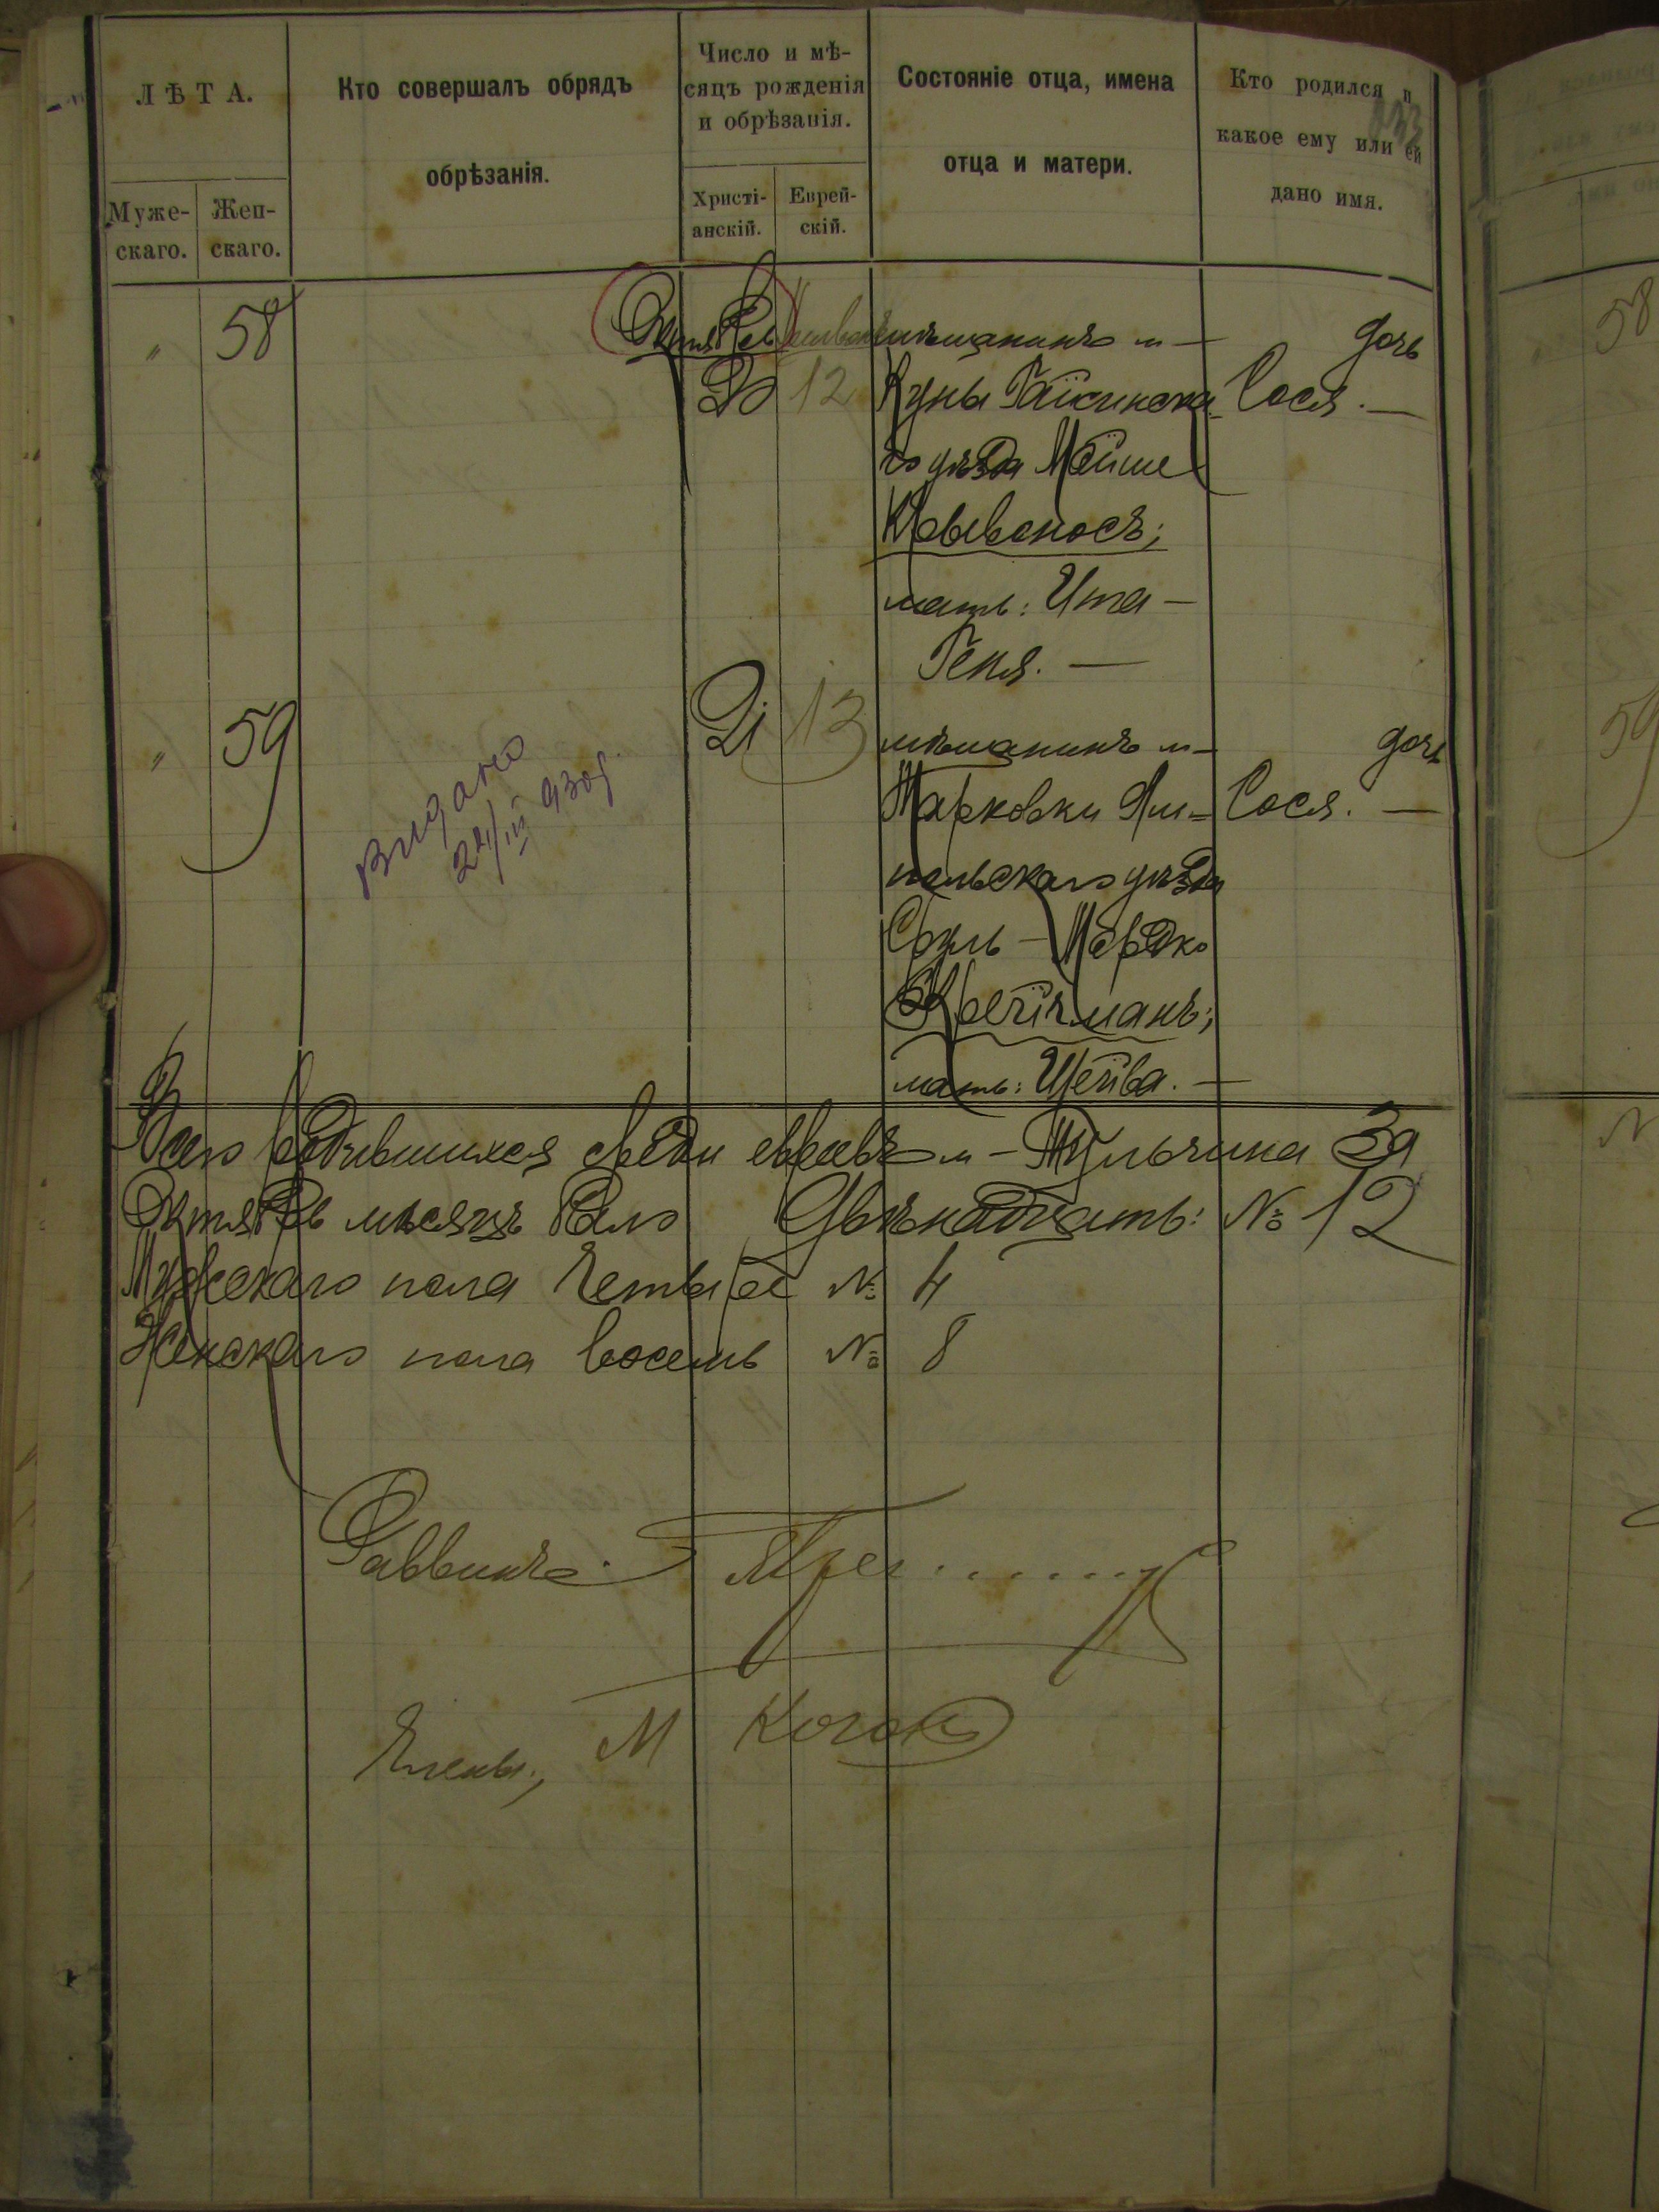 ЛѢТА.
Муже-
скаго.
Жен-
скаго.
Кто совершалъ обрядъ
обрѣзанія.
Число и мѣ-
сяцъ рожденія
и обрѣзанія.
Христі-
анскій.
Еврей-
скій.
Состояніе отца, имена
отца и матери.
Кто родился и
какое ему или ей
дано имя.
„ 58
Октябрь
20 12
мѣщанинъ м-
Куны Гайсинска
го уѣзда Мойше
Крывоносъ;
мать: Ита-
Геня.
дочь
Сося.
„ 59
Видано
24/IV 930 г
21 13
мѣщанинъ м-
Жарковки Ям=
польскаго уѣзда
Сруль-Мордко
Крейчманъ;
мать: Шейва.
дочь
Сося.
Всего родившихся среди евреевъ м-Тульчина За
Октябрь мѣсяцъ было Двѣнадцать: № 12
Мужескаго пола Четыре № 4
Женскаго пола восемь № 8
Раввинъ:
Члены; М Коган